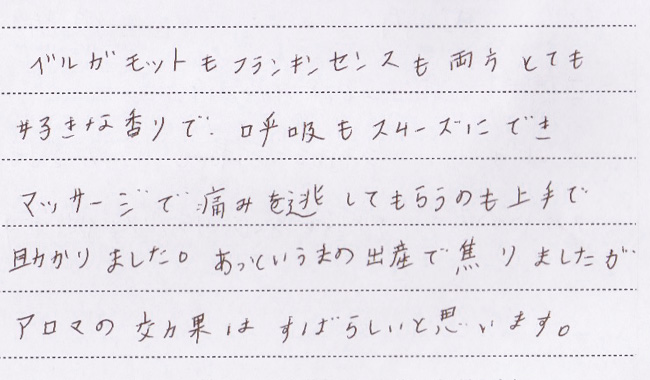 ベルガモットもフランキンセンスも両方とても
好きな香りで、呼吸もスムーズにでき
マッサージで痛みを逃してもらうのも上手で
助かりました。あっというまの出産で焦りましたが
アロマの効果はすばらしいと思います。